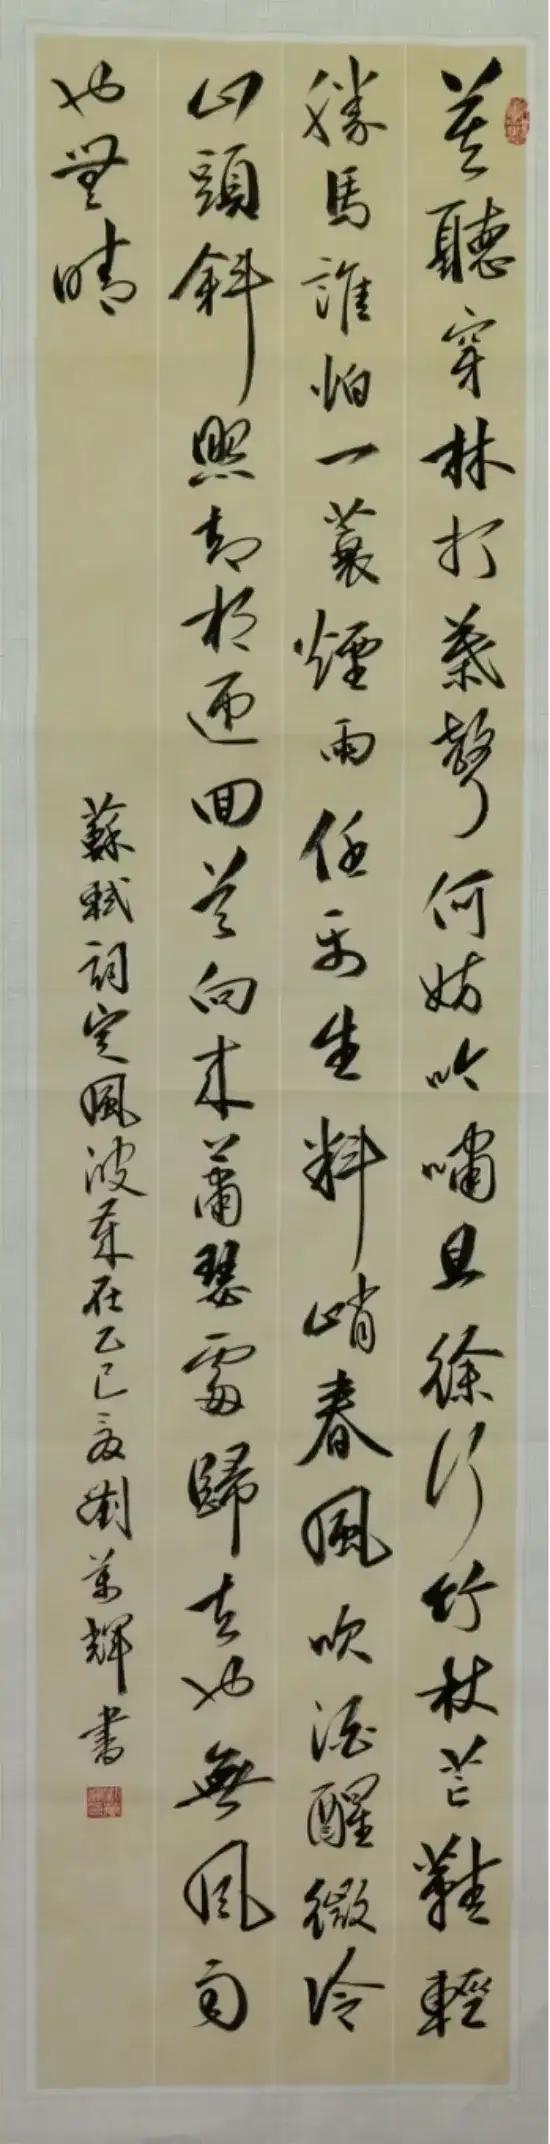 莫聽穿林打葉聲何妨吟嘯且徐行竹杖芒鞋輕
勝馬誰怕一蓑煙雨任平生料峭春風吹酒醒微冷
山頭斜照却相迎回首向來蕭瑟處歸去也無風雨
也無晴
蘇軾詞定風波歲在乙巳夏劉萬輝書